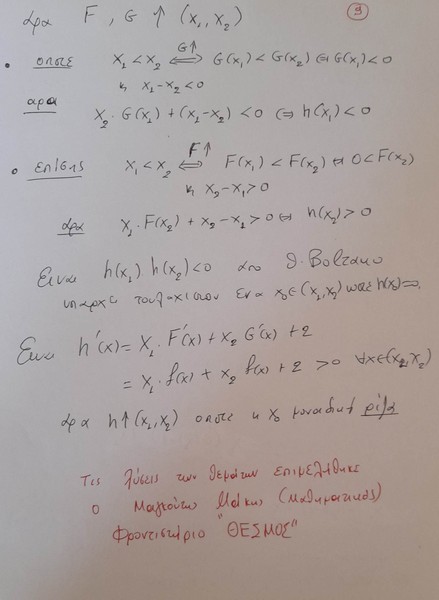 άρα F, G ↑ (x₁, x₂) ⑨
• οποτε x₁ < x₂ ⇔ G↑ G(x₁) < G(x₂) ⇔ G(x₁) < 0
κ x₁ - x₂ < 0
αρα x₂ · G(x₁) + (x₁ - x₂) < 0 ⇔ h(x₁) < 0
• επίσης x₁ < x₂ ⇔ F↑ F(x₁) < F(x₂) ⇔ 0 < F(x₂)
κ x₂ - x₁ > 0
άρα x₁ · F(x₂) + x₂ - x₁ > 0 ⇔ h(x₂) > 0
Ειναι h(x₁) · h(x₂) < 0 απο θ. Boltzano
υπαρχει τουλαχιστον ενα x₀ ∈ (x₁, x₂) ωστε h(x₀) = 0.
Ειναι h'(x) = x₁ · F'(x) + x₂ G'(x) + 2
= x₁ · f(x) + x₂ f(x) + 2 > 0 ∀x ∈ (x₁, x₂)
άρα h ↑ (x₁, x₂) οποτε η x₀ μοναδική ρίζα
Τις λύσεις των θεμάτων επιμελήθηκε
ο Μαγκούτης Μάκης (Μαθηματικός)
Φροντιστήριο "ΘΕΣΜΟΣ"